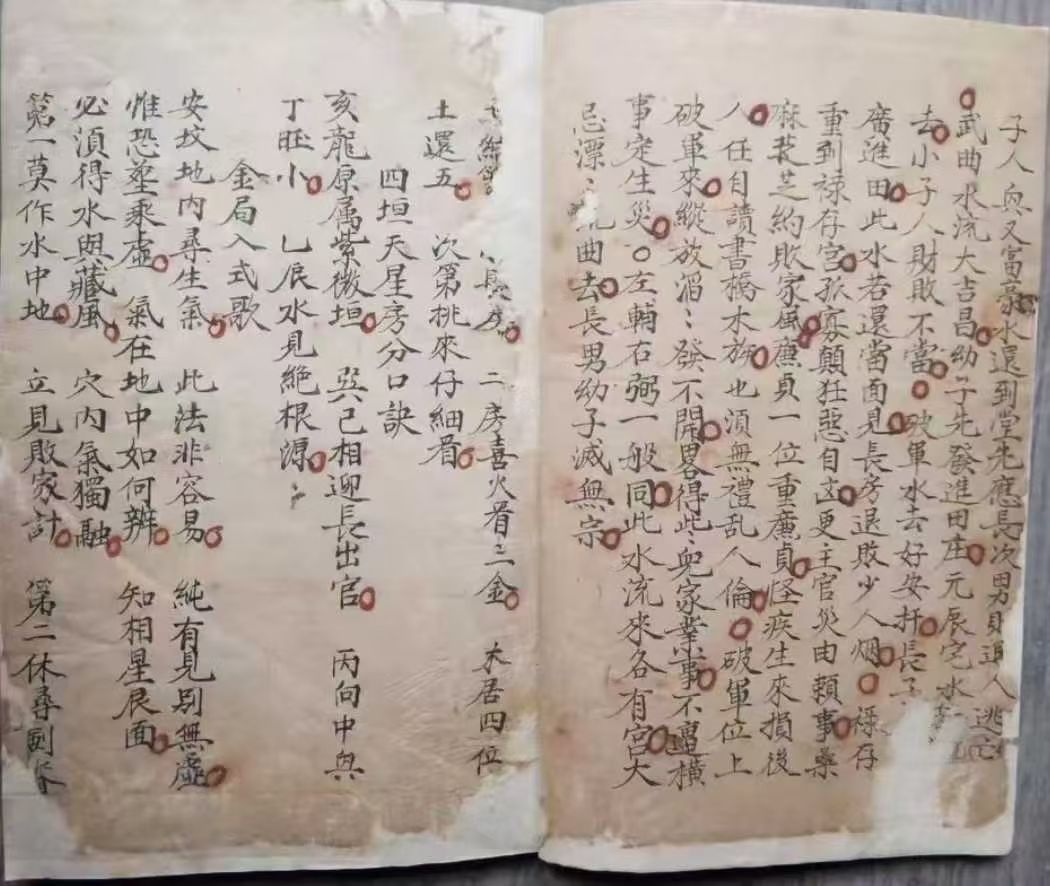 子人與又富豪水還到堂先應長次男財退人逃亡
武曲水流大吉昌幼子先發進田庄元辰宅水
去小子人財敗不當破軍水去好安扦長子
廣進田此水若還當面見長房退敗少人烟祿存
重到祿存宮孤寡顛狂惡自凶更主官災由賴事桑
麻芝約敗家風廉貞一位重廉貞怪疾生來損後
人任自讀書橋木族也須無禮乱人倫破軍位上
破軍來縱放滔〻發不開畧得此〻兒家業事不遭橫
事定生災〇左輔右弼一般同此水流來各有宮大
忌漂〻曲去長男幼子滅無宗
長房 二房喜火看三金 木居四位
土還五 次第挑來仔細看
四垣天星房分口訣
亥龍原属紫微垣 巽己相迎長出官 丙向中與
丁旺小 乙辰水見絕根源
金局入式歌
安坟地內尋生氣 此法非容易 純有見刟無虛
惟恐塟乘虛 氣在地中如何辨 知相星辰面
必須得水與藏風 穴內氣獨融
第一莫作水中地 立見敗家計 第二休尋